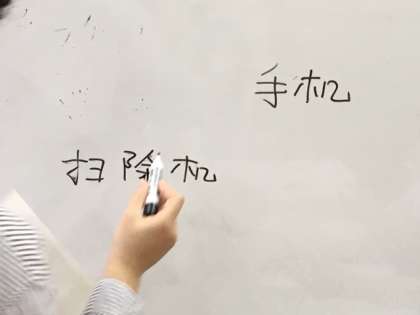 手机
扫除机